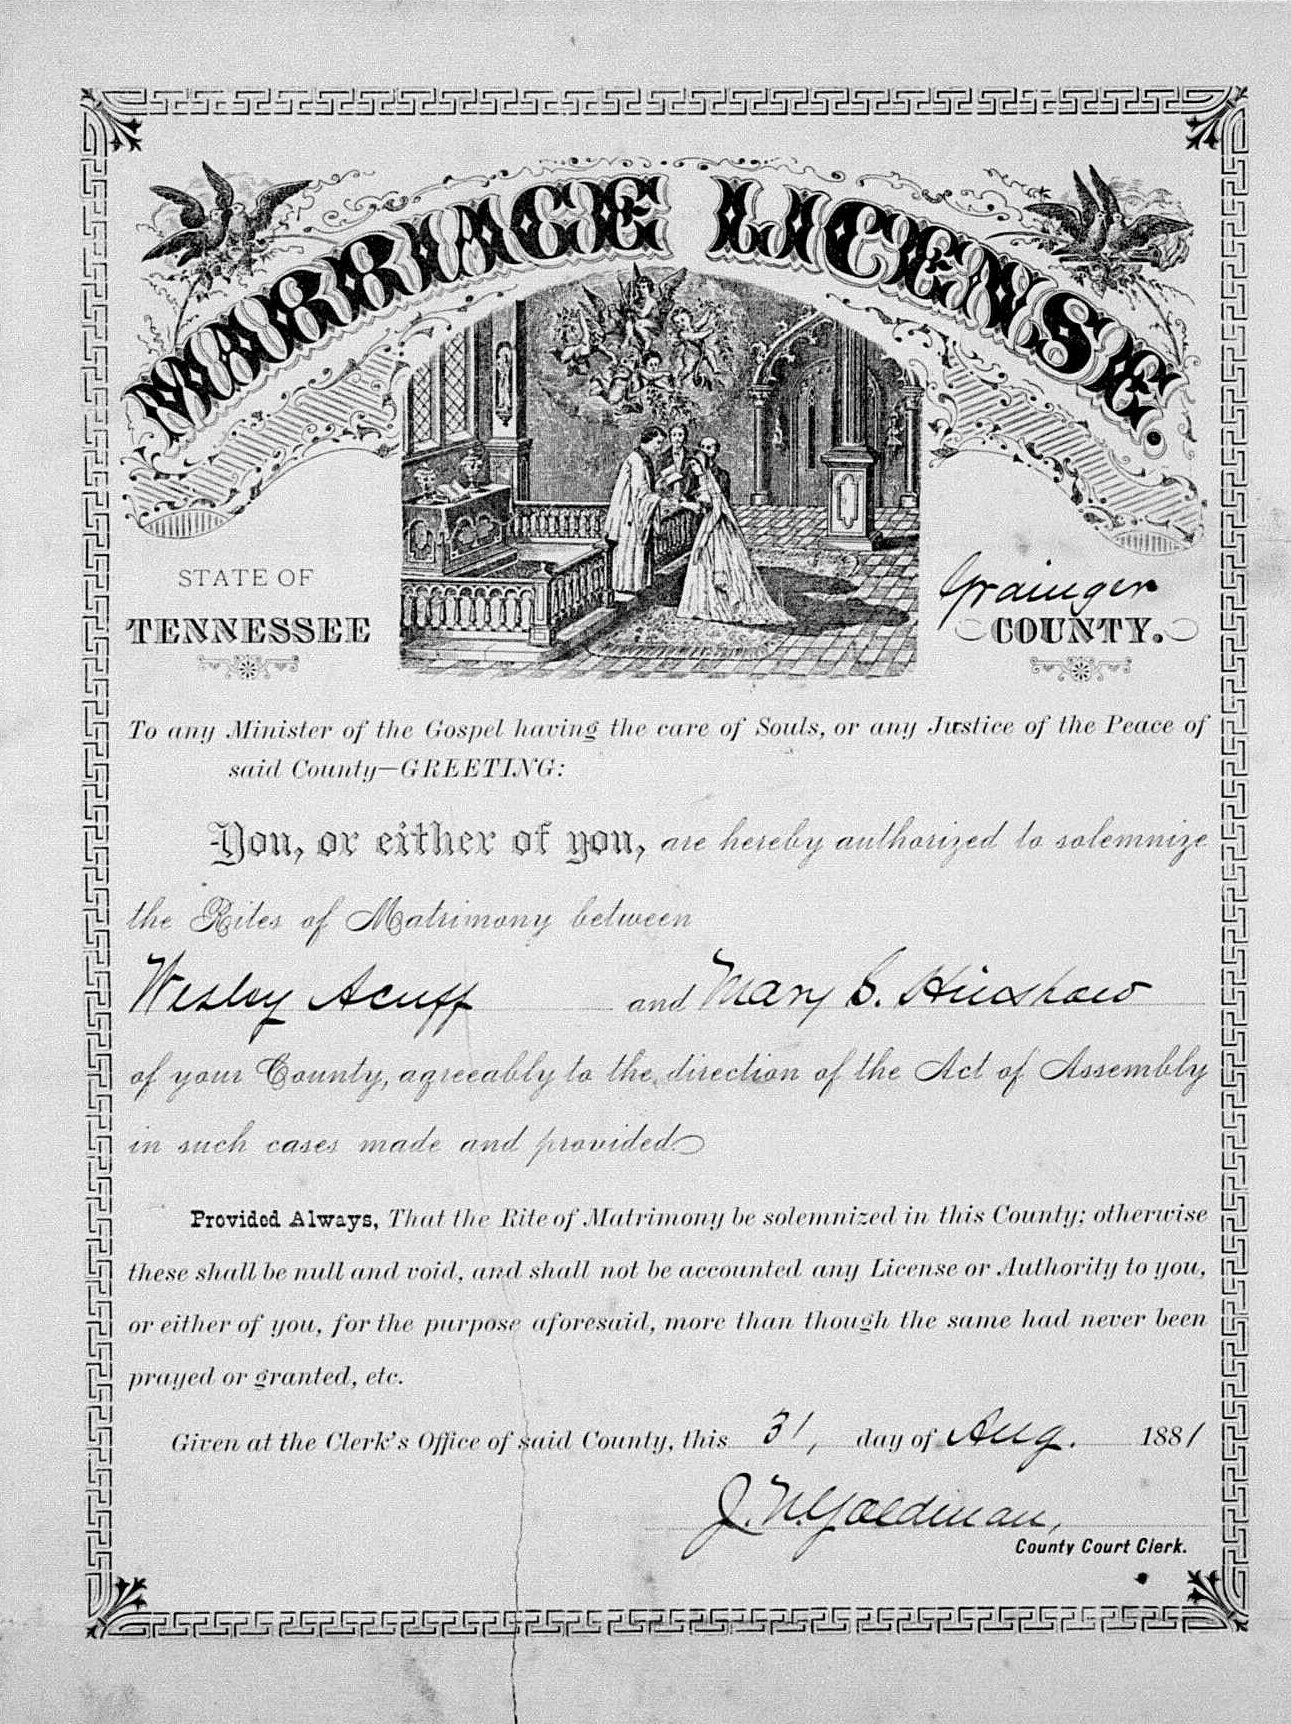 MARRIAGE LICENSE.
STATE OF
TENNESSEE
Grainger
COUNTY.
To any Minister of the Gospel having the care of Souls, or any Justice of the Peace of
said County—GREETING:
You, or either of you, are hereby authorized to solemnize
the Rites of Matrimony between
Wesley Acuff and Mary S. Hinshaw
of your County, agreeably to the direction of the Act of Assembly
in such cases made and provided.
Provided Always, That the Rite of Matrimony be solemnized in this County; otherwise
these shall be null and void, and shall not be accounted any License or Authority to you,
or either of you, for the purpose aforesaid, more than though the same had never been
prayed or granted, etc.
Given at the Clerk's Office of said County, this 31, day of Aug. 1881
J. N. Goldman,
County Court Clerk.